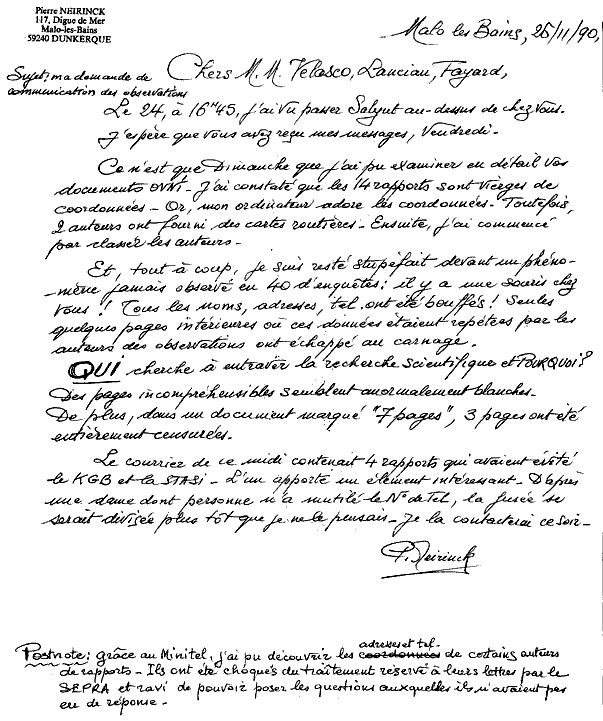 Pierre NEIRINCK
117, Digue de Mer
Malo-les-Bains
59240 DUNKERQUE
Malo les Bains, 26/11/90,
Sujet: ma demande de
communication des observations
Chers M.M. Velasco, Lancian, Fayard,
Le 24, à 16H45, j'ai vu passer Salyut au-dessus de chez vous.
J'espère que vous avez reçu mes messages, Vendredi.
Ce n'est que Dimanche que j'ai pu examiner en détail vos
documents OVNI - J'ai constaté que les 14 rapports sont vierges de
coordonnées - Or, mon ordinateur adore les coordonnées - Toutefois,
2 auteurs ont fourni des cartes routières - Ensuite, j'ai commencé
par classer les auteurs -
Et, tout à coup, je suis resté stupéfait devant un phéno-
-mène jamais observé en 40 d'enquêtes: il y a une souris chez
vous!! Tous les noms, adresses, tel. ont été bouffés! Seules
quelques pages intérieures où ces données étaient repétées par les
auteurs des observations ont échappé au carnage.
QUI cherche à entraver la recherche scientifique et POURQUOI?
Des pages incompréhensibles semblent anormalement blanches.
De plus, dans un document marqué "7 pages", 3 pages ont été
entièrement censurées.
Le courrier de ce midi contenait 4 rapports qui avaient évité
le KGB et la STASI - L'un apporte un élément intéressant - D'après
une dame dont personne n'a mutilé le N° de Tel, la fusée se
serait divisée plus tôt que je ne le pensais - Je la contacterai ce soir -
P. Neirinck
adresses et tel.
Postnote: grâce au Minitel, j'ai pu découvrir les coordonnées de certains auteurs
de rapports - Ils ont été choqués du traitement réservé à leurs lettres par le
SEPRA et ravi de pouvoir poser les questions auxquelles ils n'avaient pas
eu de réponse -